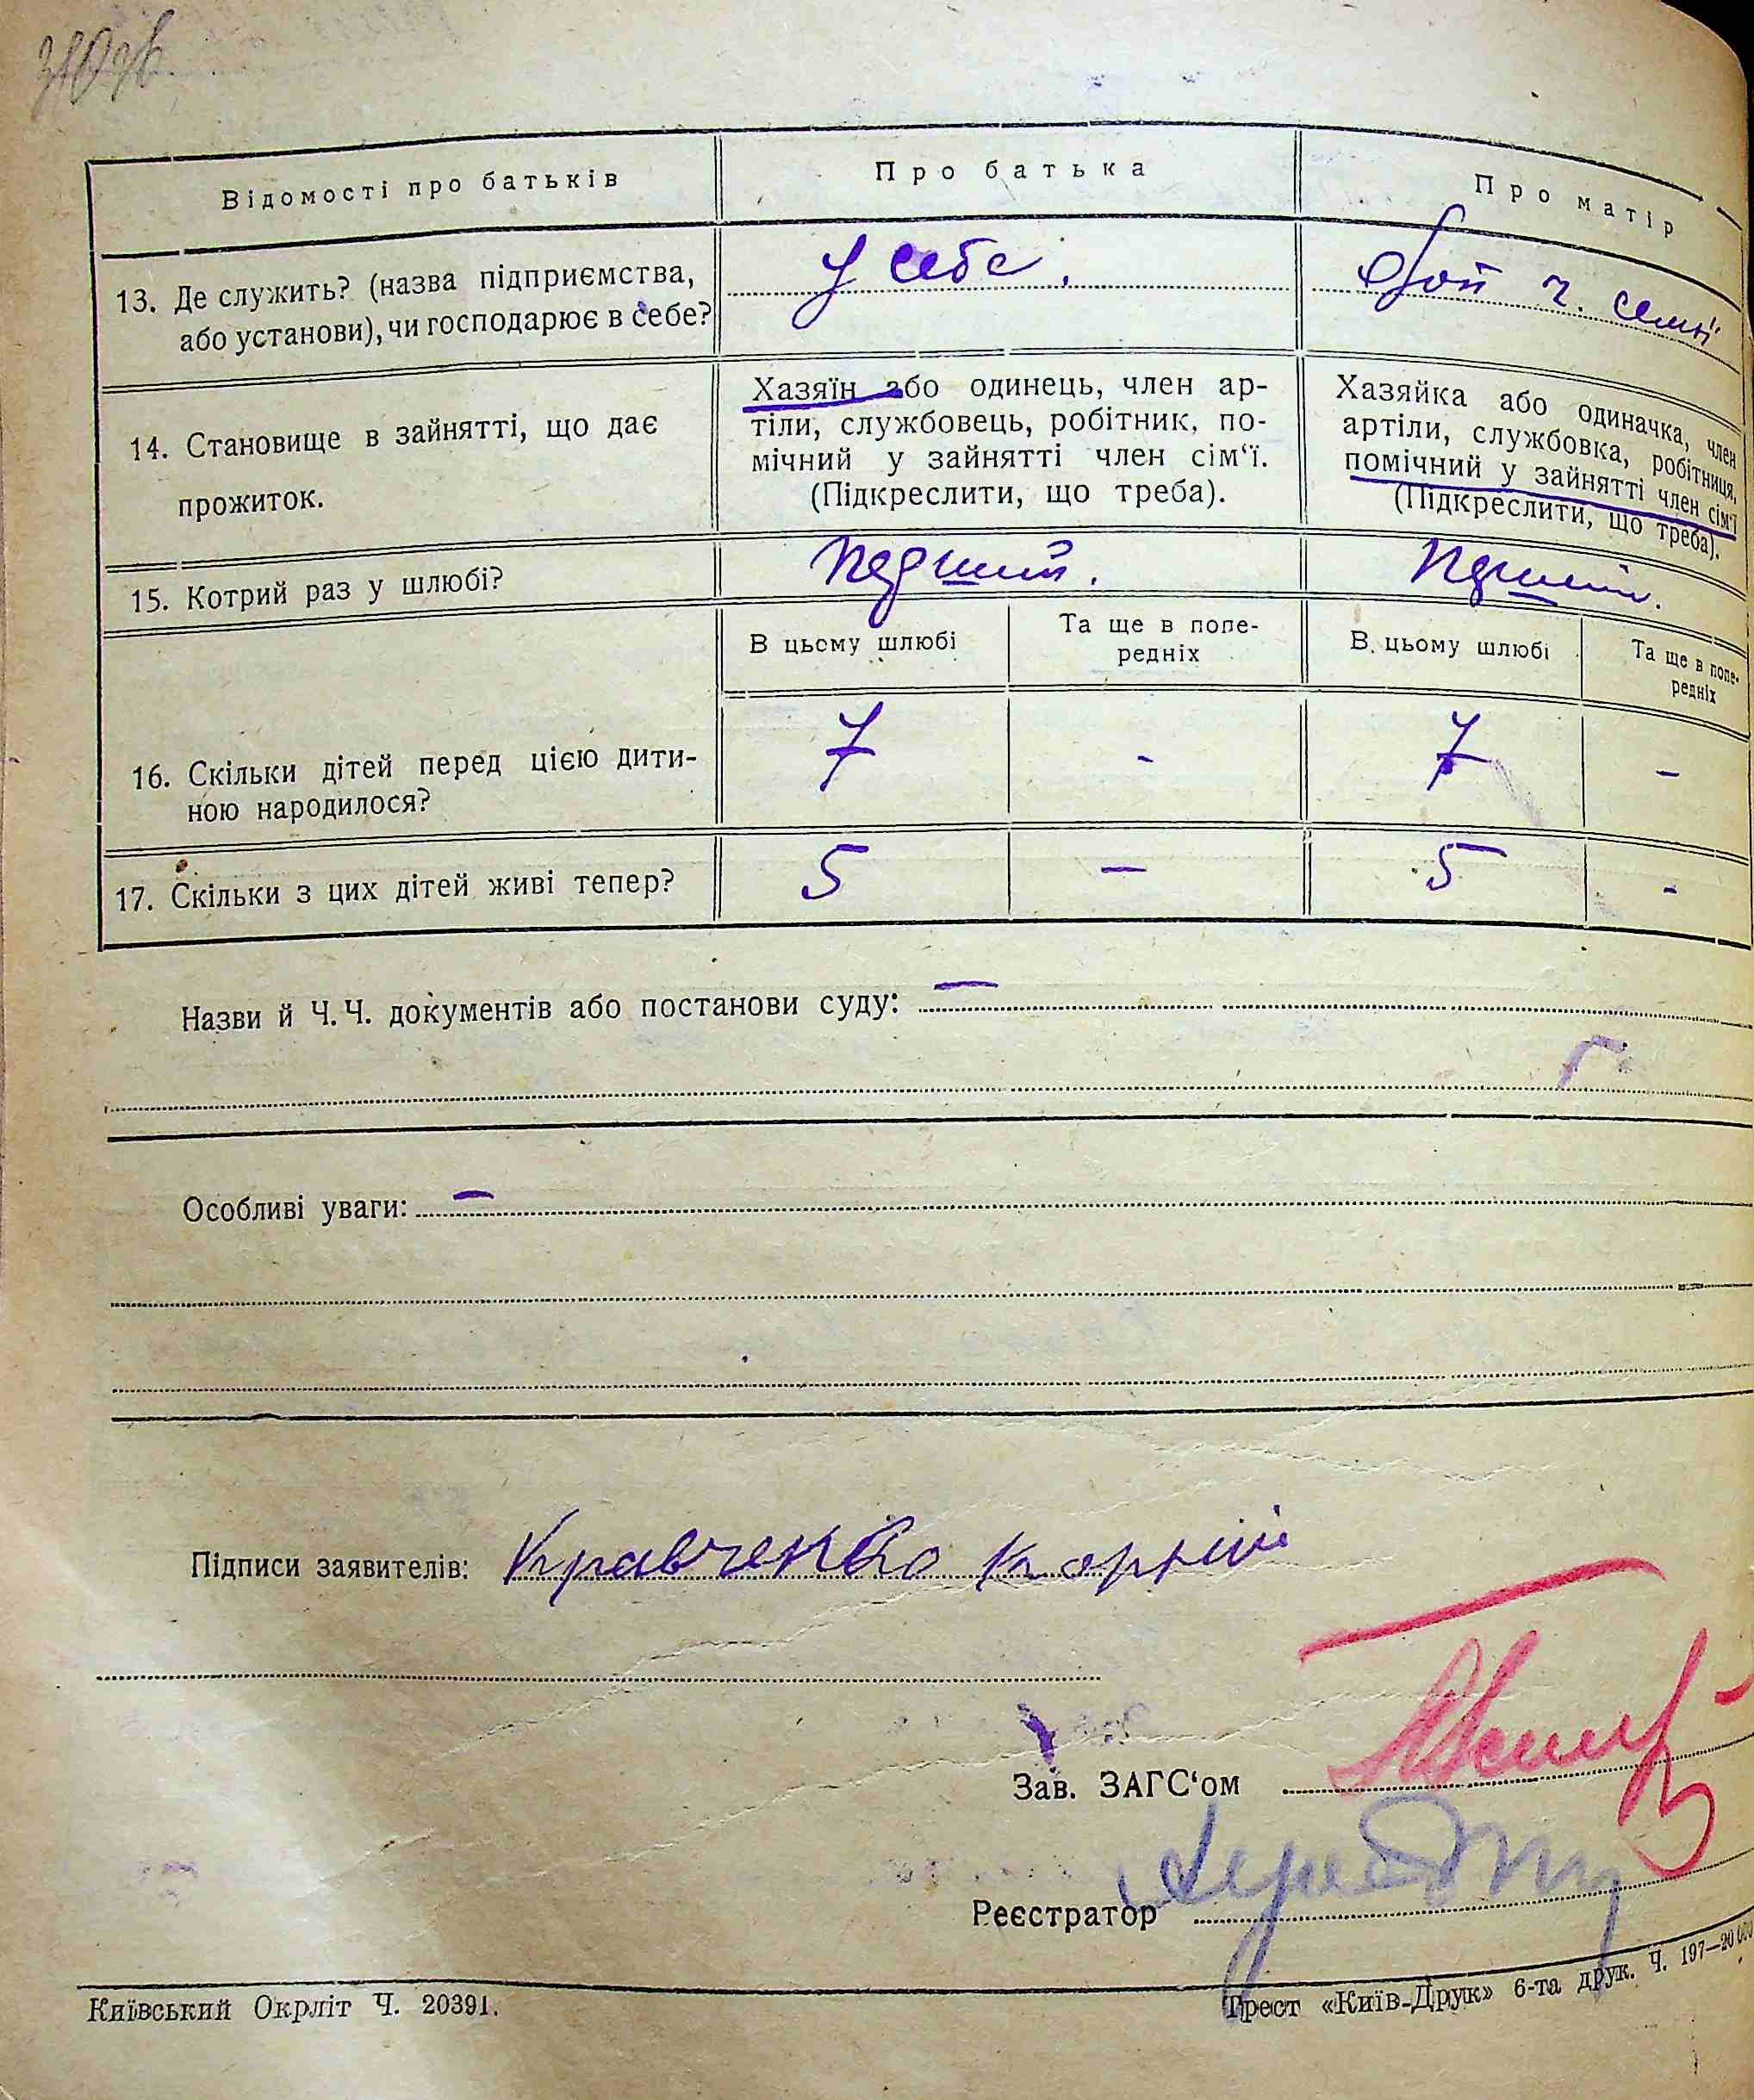 Відомості про батьків
Про батька
Про матір
13. Де служить? (назва підприємства,
або установи), чи господарює в себе?
у себе.
ч. семьї
14. Становище в зайнятті, що дає
прожиток.
Хазяїн або одинець, член ар-
тіли, службовець, робітник, по-
мічний у зайнятті член сім‘ї.
(Підкреслити, що треба).
Хазяйка або одиначка, член
артіли, службовка, робітниця,
помічний у зайнятті член сім‘ї
(Підкреслити, що треба).
15. Котрий раз у шлюбі?
Перший.
Перший.
В цьому шлюбі
Та ще в попе-
редніх
В цьому шлюбі
Та ще в попе-
редніх
16. Скільки дітей перед цією дити-
ною народилося?
7 - 7 -
17. Скільки з цих дітей живі тепер?
5 — 5 -
Назви й Ч.Ч. документів або постанови суду: —
Особливі уваги: —
Підписи заявителів: Кравченко Корній
Зав. ЗАГС‘ом
Реєстратор
Київський Окрліт Ч. 20391.
Трест «Київ-Друк» 6-та друк. Ч. 197—20 000